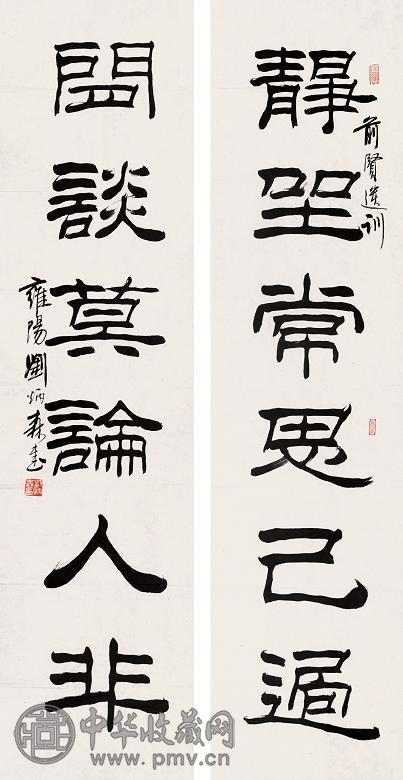 靜坐常思己過
前賢遺訓
閒談莫論人非
雍陽劉炳森書
中华收藏网
www.pmv.cn